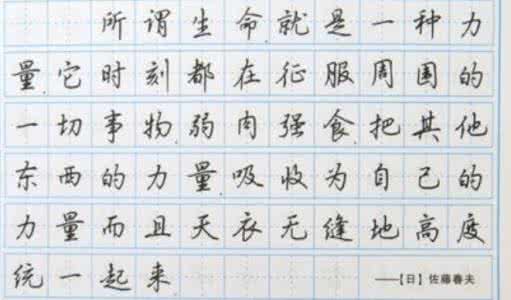 所谓生命就是一种力
量,它时刻都在征服周围的
一切事物,弱肉强食,把其他
东西的力量吸收为自己的
力量而且天衣无缝地高度
统一起来
——【日】佐藤春夫